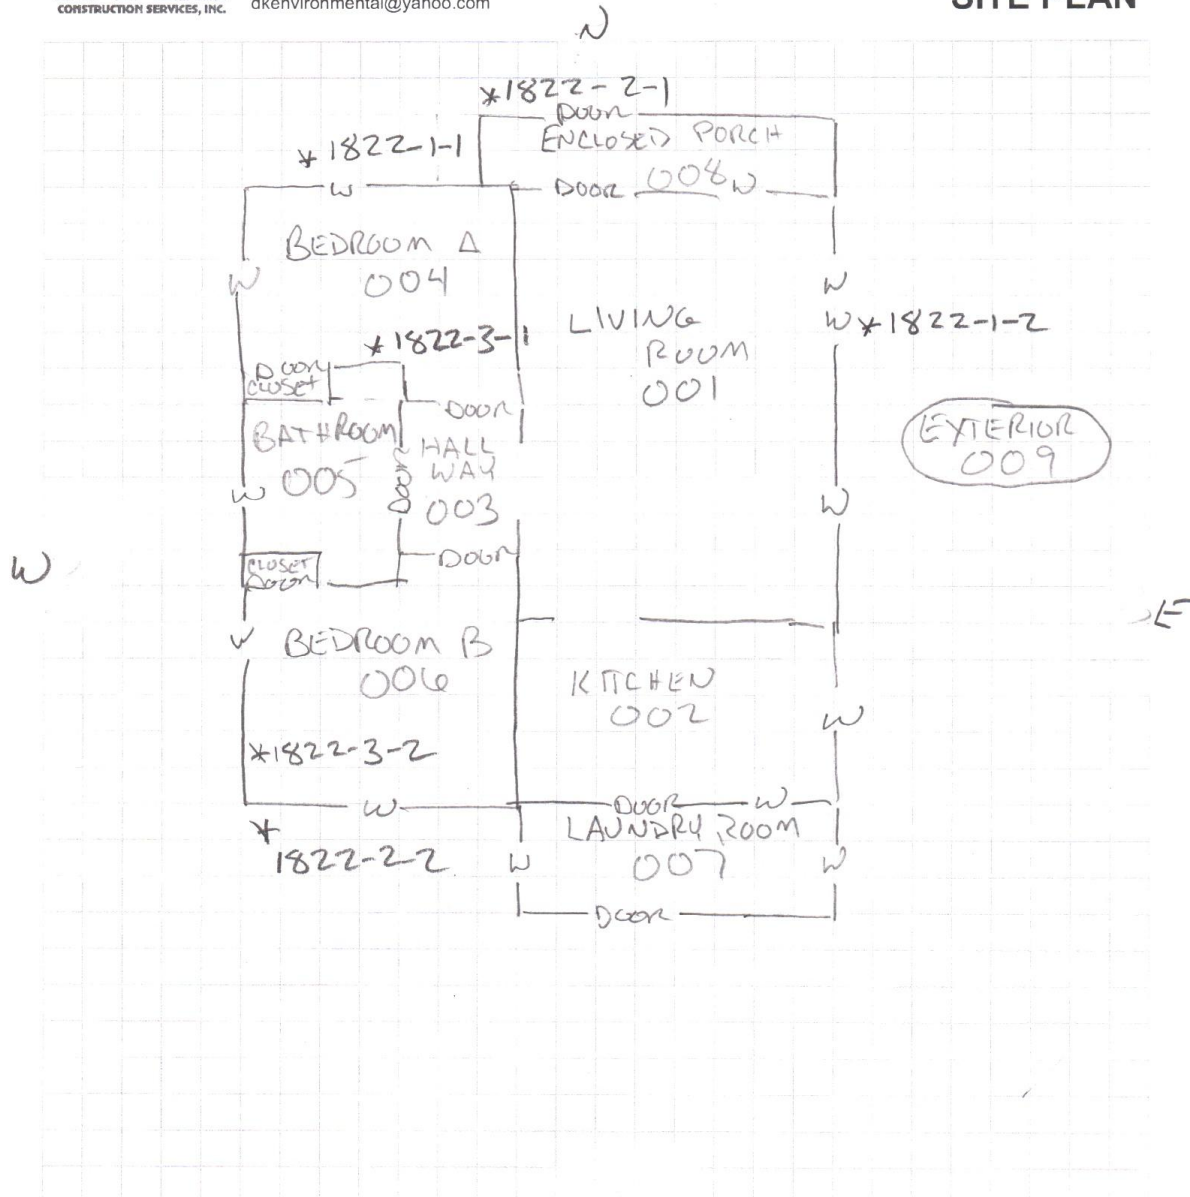 CONSTRUCTION SERVICES, INC.
dkenvironmental@yahoo.com
SITE PLAN
N
*1822-2-1
DOOR
ENCLOSED PORCH
008
*1822-1-1
W
DOOR
W
BEDROOM A
004
W
W
LIVING
ROOM
001
W *1822-1-2
*1822-3-1
DOOR
CLOSET
DOOR
BATHROOM
005
DOOR
HALL
WAY
003
EXTERIOR
009
W
W
W
CLOSET
DOOR
DOOR
E
W
BEDROOM B
006
KITCHEN
002
W
*1822-3-2
W
DOOR
W
LAUNDRY ROOM
007
*
1822-2-2
W
W
DOOR